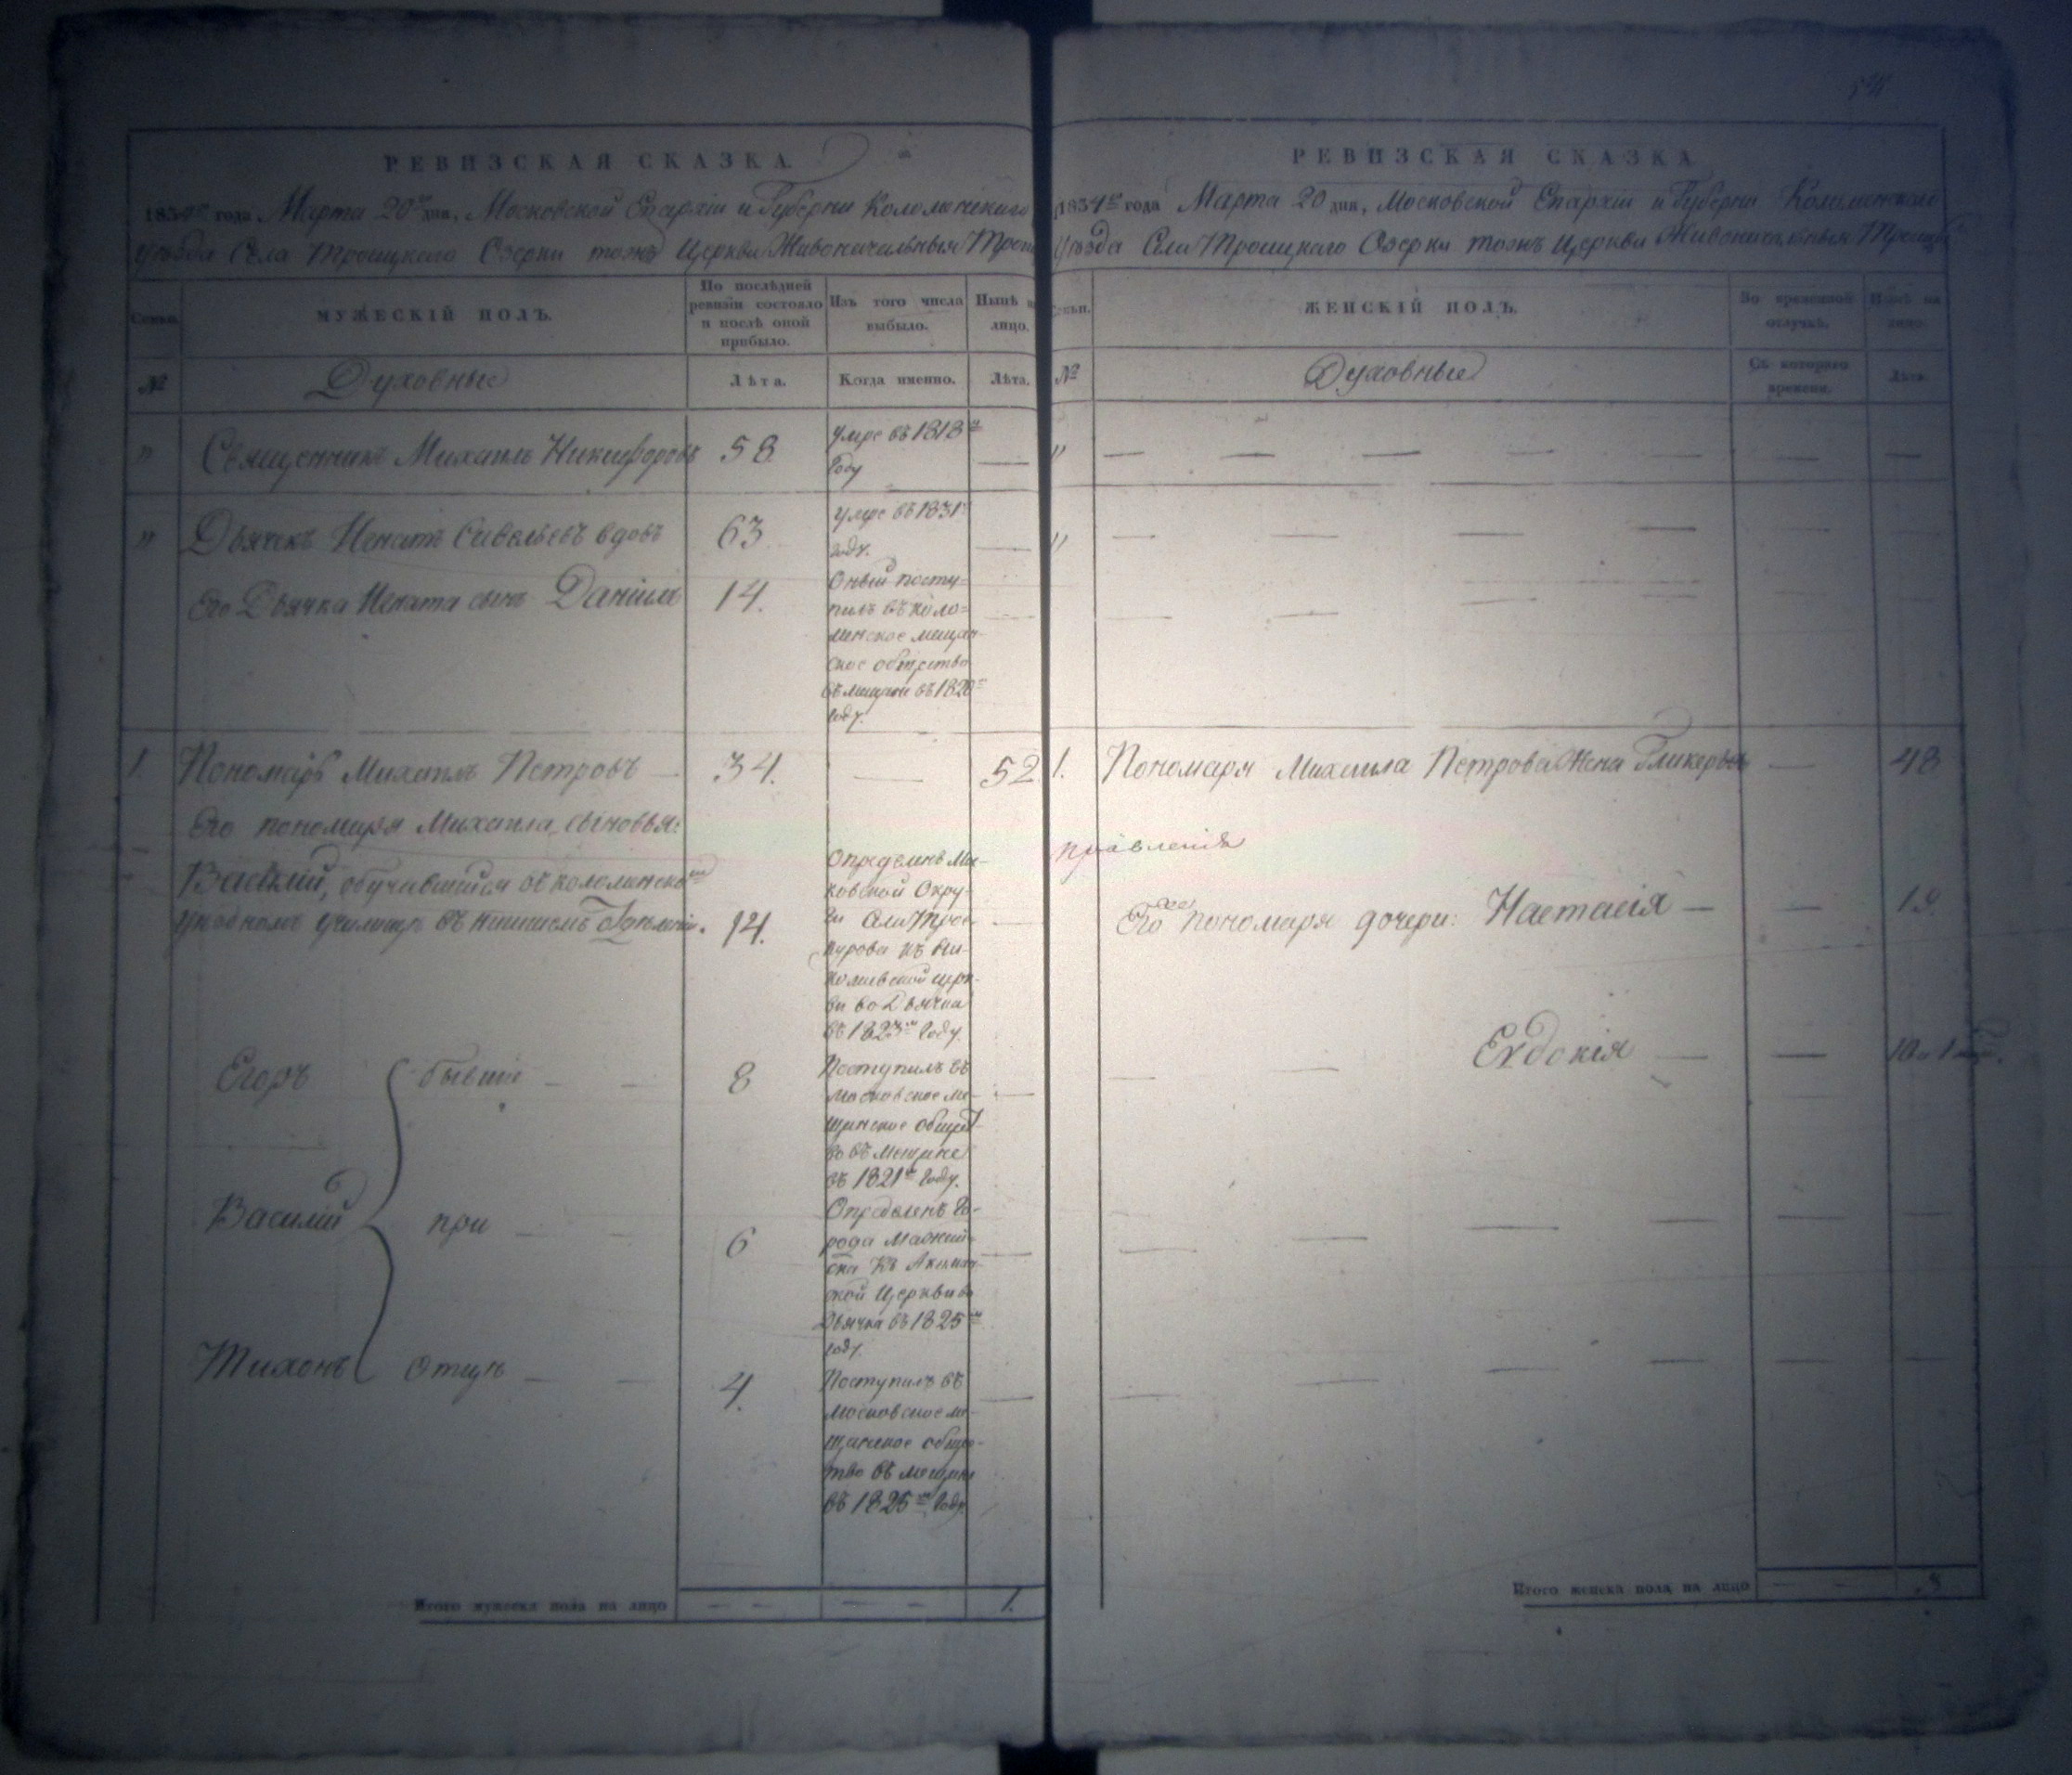 РЕВИЗСКАЯ СКАЗКА.
1834го года Марта 20го дня, Московской Епархіи и Губерніи Коломенскаго
Уѣзда Села Троицкаго Озерки тожъ Церкви Живоначальныя Трои
Семьи.
МУЖЕСКІЙ ПОЛЪ.
По послѣдней
ревизіи состояло
и послѣ оной
прибыло.
Изъ того числа
выбыло.
Нынѣ на
лицо.
№
Духовные
Лѣта.
Когда именно.
Лѣта.
" Священникъ Михаилъ Никифоровъ 58
Умре въ 1818м
году
" Дьячекъ Игнатъ Савельевъ вдовъ 63
умре въ 1831м
году.
Его Дьячка Игната сынъ Даніилъ 14.
Оный посту-
пилъ въ коло-
менское мещан-
ское общество
въ мещане въ 1820м
году.
1 Пономарь Михаилъ Петровъ 34. 52
Его пономаря Михаила сыновья:
Василій, обучавшійся въ коломенскомъ
уѣздномъ училищѣ въ низшемъ 14.
Опредѣленъ
ковской Окру-
ги Села Трое-
курова къ Ни-
колаевской церк-
ви во Дьячка
въ 1823м году.
Егоръ бывшіе 8
Поступилъ въ
московское ме-
щанское общест-
во въ мещане
въ 1821м году.
Василій при 6
Опредѣленъ го-
рода Можай-
ска къ Акиман-
ской Церкви во
Дьячка въ 1825м
году.
Тихонъ отцѣ 4.
Поступилъ въ
московское ме-
щанское общес-
тво въ мещане
въ 1825м году.
Итого мужеска пола на лицо 1.
РЕВИЗСКАЯ СКАЗКА
1834го года Марта 20 дня, Московской Епархіи и Губерніи Коломенскаго
Уѣзда Села Троицкаго Озерки тожъ Церкви Живоначальныя Троицы
Семьи.
ЖЕНСКІЙ ПОЛЪ.
Во временной
отлучкѣ.
Нынѣ на
лицо.
№
Духовные
Съ котораго
времени.
Лѣта.
"
"
1. Пономаря Михаила Петрова Жена Гликерья 48
правленія
Его пономаря дочери: Настасія 19
Евдокія 10
Итого женска пола на лицо 3